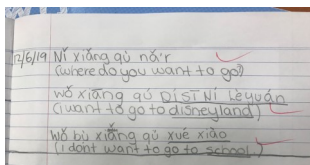 12/6/19 Nǐ xiǎng qù nǎ'r
(where do you want to go?)
Wǒ xiǎng qù DÍSĪNÍ Lèyuán
(i want to go to disneyland)
Wǒ bù xiǎng qù xué xiào
(i dont want to go to school.)